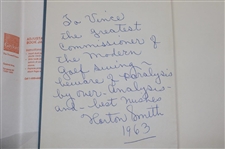 To Vince
the greatest
Commissioner of
the Modern
Golf Swing ~
beware of Paralysis
by over-analysis -
and - best wishes
Horton Smith
1963